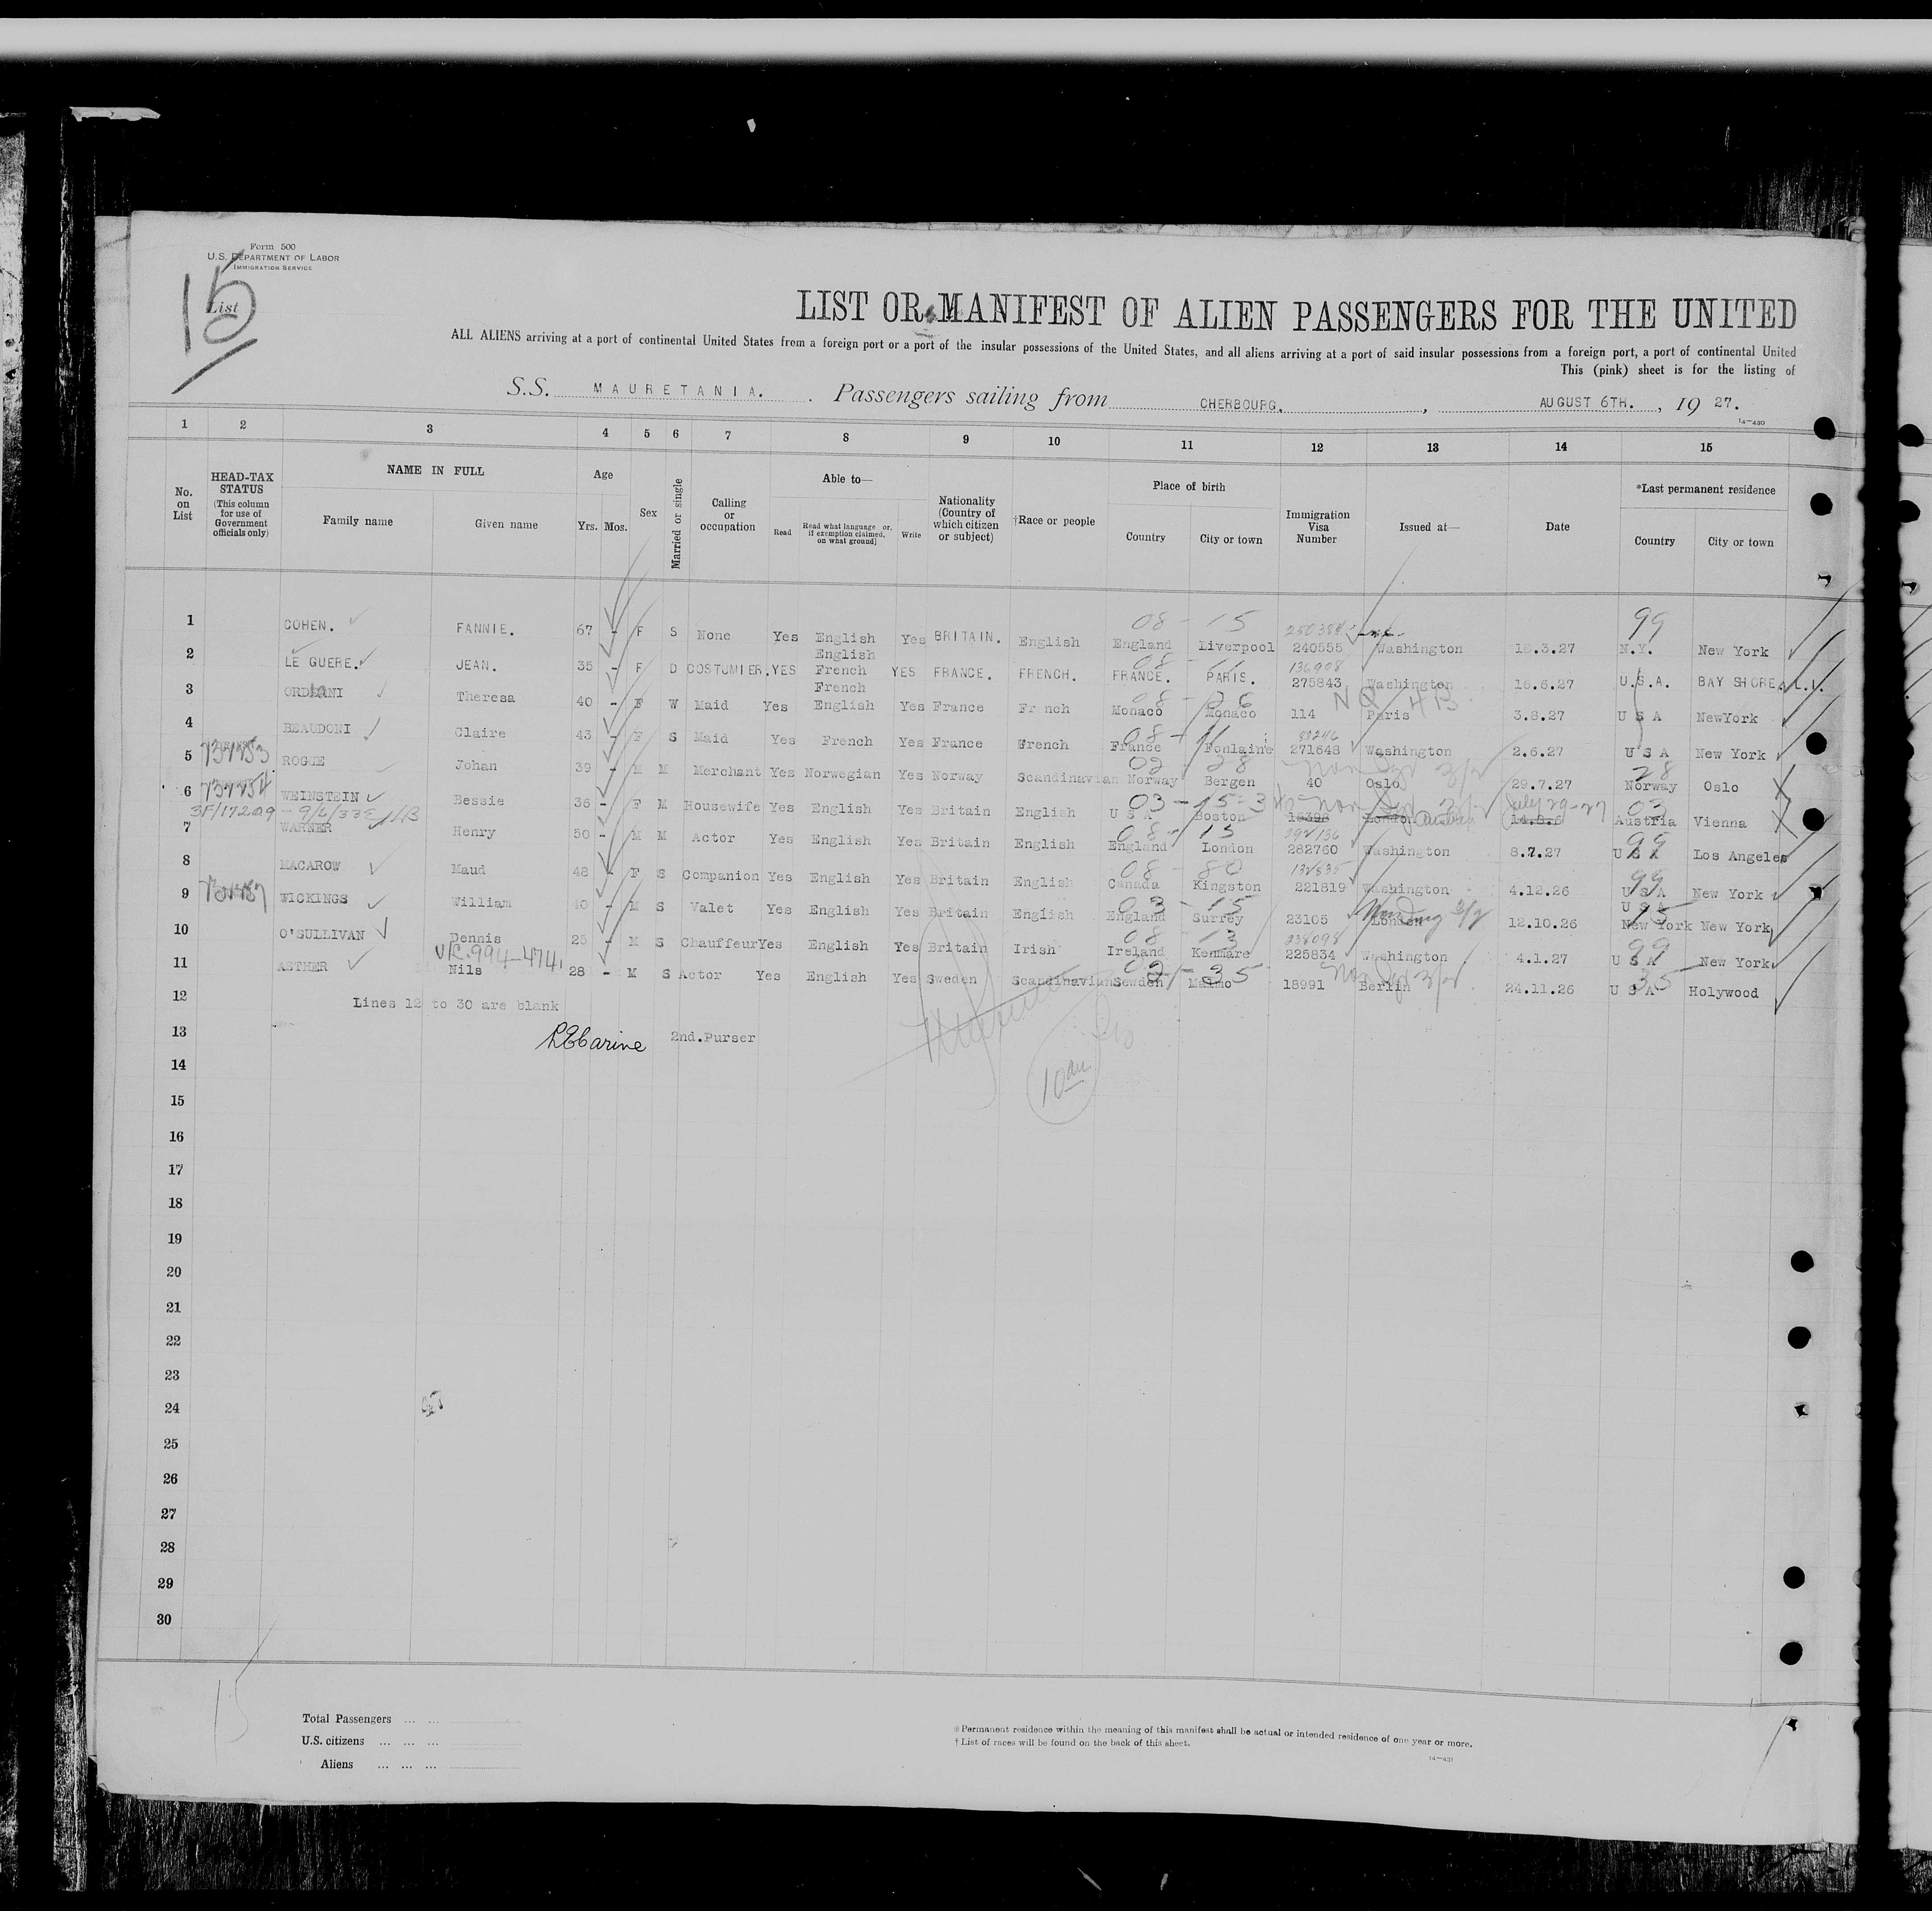 Form 500
U.S. DEPARTMENT OF LABOR
IMMIGRATION SERVICE
List
15
LIST OR MANIFEST OF ALIEN PASSENGERS FOR THE UNITED
ALL ALIENS arriving at a port of continental United States from a foreign port or a port of the insular possessions of the United States, and all aliens arriving at a port of said insular possessions from a foreign port, a port of continental United
This (pink) sheet is for the listing of
S.S. MAURETANIA. Passengers sailing from CHERBOURG, AUGUST 6TH. , 19 27.
14—430
1 2 3 4 5 6 7 8 9 10 11 12 13 14 15
No. on List HEAD-TAX STATUS (This column for use of Government officials only) NAME IN FULL Family name Given name Age Yrs. Mos. Sex Married or single Calling or occupation Able to— Read Read what language or, if exemption claimed, on what ground] Write Nationality (Country of which citizen or subject) †Race or people Place of birth Country City or town Immigration Visa Number Issued at— Date *Last permanent residence Country City or town
08 - 15 99
1 COHEN. FANNIE. 67 - F S None Yes English Yes BRITAIN. English England Liverpool 240555 Washington 18.3.27 N.Y. New York
English 136908
2 LE GUERE. JEAN. 35 - F D COSTUMIER. YES French YES FRANCE. FRENCH. FRANCE. PARIS. 275843 Washington 16.6.27 U.S.A. BAY SHORE. L.I.
French
3 Theresa 40 - F W Maid Yes English Yes France Fr nch Monaco Monaco 114 Paris 3.8.27 U S A NewYork
4 BEAUDONI Claire 43 - F S Maid Yes French Yes France French France Fonlaine 271648 Washington 2.6.27 U S A New York
5 737453 ROGGE Johan 39 - M M Merchant Yes Norwegian Yes Norway Scandinavian Norway Bergen 40 Oslo 29.7.27 Norway Oslo
6 737454 WEINSTEIN Bessie 36 - F M Housewife Yes English Yes Britain English U S A Boston London Austria Vienna
3F/17209 - 9/6/33
7 WARNER Henry 50 - M M Actor Yes English Yes Britain English England London 282760 Washington 8.7.27 U S A Los Angeles
8 MACAROW Maud 48 - F S Companion Yes English Yes Britain English Canada Kingston 221819 Washington 4.12.26 U S A New York
U S A
9 WICKINGS William 40 - M S Valet Yes English Yes Britain English England Surrey 23105 London 12.10.26 New York New York
10 O'SULLIVAN Dennis 25 - M S Chauffeur Yes English Yes Britain Irish Ireland Kenmare 225834 Washington 4.1.27 U S A New York
11 ASTHER Nils 28 - M S Actor Yes English Yes Sweden Scandinavian Sewden Malmo 18991 Berlin 24.11.26 U S A Holywood
12 Lines 12 to 30 are blank
13 2nd.Purser
14
15
16
17
18
19
20
21
22
23
24
25
26
27
28
29
30
15
Total Passengers ... ...
U.S. citizens ... ... ...
Aliens ... ... ...
*Permanent residence within the meaning of this manifest shall be actual or intended residence of one year or more.
†List of races will be found on the back of this sheet.
14—431